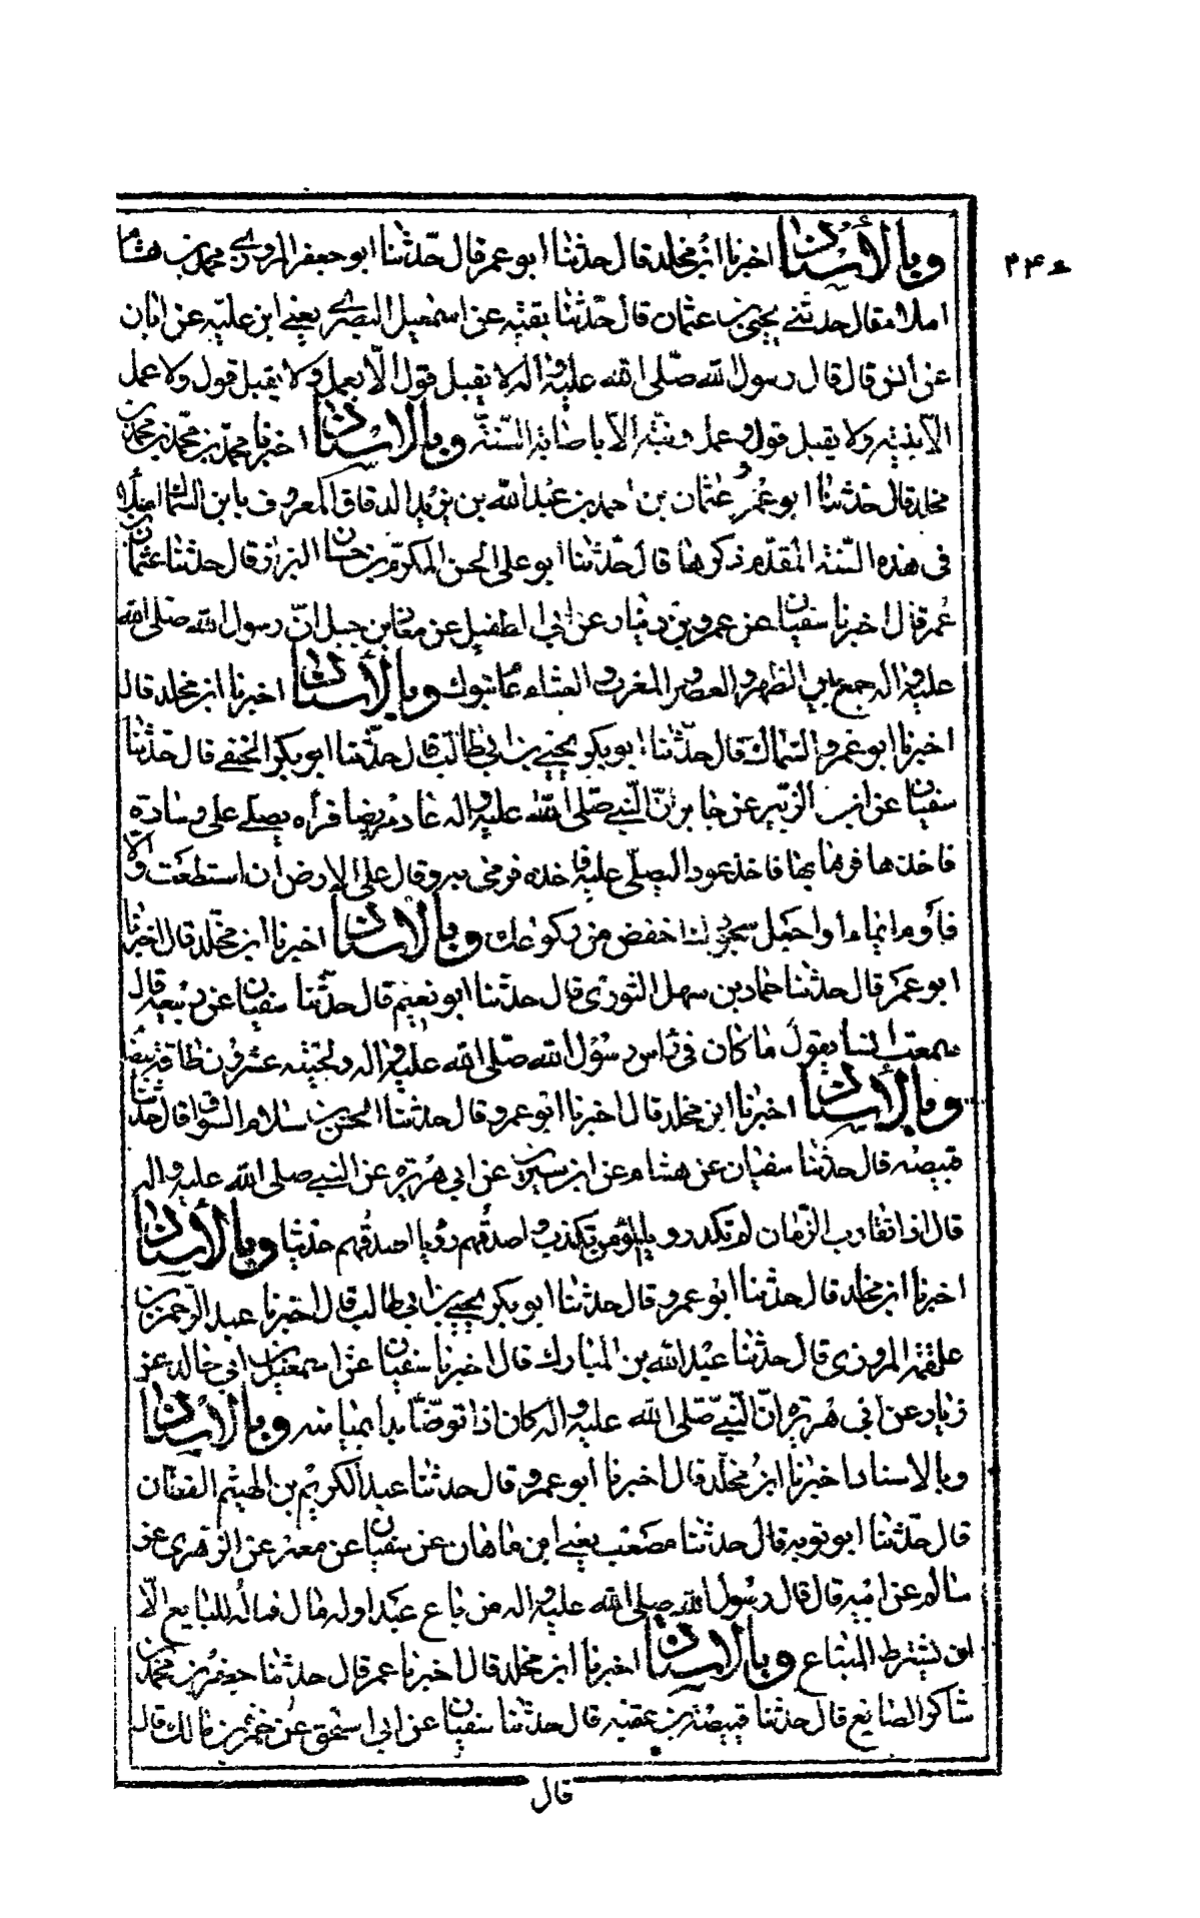 وبالأسناد اخبرنا ابن مخلد قال حدثنا ابو عمر قال حدّثنا ابو جعفر المروزي محمد بن هشام
املاء قال حدثني يحيى بن عثمان قال حدّثنا بقيّه عن اسمعيل البصري يعني ابن عليّه عن ابان
عن انس قال قال رسول الله صلّى الله عليه واله لا يقبل قول الّا بعمل ولا يقبل قول ولا عمل
الّا بنيّه ولا يقبل قول وعمل ونيّه الّا باصابة السّنة وبالاسناد اخبرنا محمّد بن محمّد بن محمد بن
مخلد قال حدّثنا ابو عمر وعثمان بن احمد بن عبد الله بن يزيد الدقاق المعروف بابن السّماك املاء
في هذه السّنة المقدّم ذكرها قال حدّثنا ابو على الحسن المكرّم بن حسان البزاز قال حدثنا عثمان بن
عُمر قال اخبرنا سفيان عن عمرو بن دينار عن ابي الطفيل عن معاذ بن جبل انّ رسول الله صلى الله
عليه واله جمع بين الظهر والعصر والمغرب والعشاء عام تبوك وبالأسناد اخبرنا ابن مخلد قال
اخبرنا ابو عمرو السّماك قال حدّثنا ابو بكر يحيى بن ابي طالب قال حدّثنا ابو بكر الحنفي قال حدّثنا
سفيان عن ابي الزّبير عن جابر انّ النّبي صلّى الله عليه واله عاد مريضا فرأه يصلي على وسادة
فاخذها فرما بها فاخذ عودا ليصلّى عليه فاخذه فرمى به وقال على الارض ان استطعت والّا
فأوم ايماء واجعل سجودك اخفض من ركوعك وبالاسناد اخبرنا ابن مخلد قال اخبرنا
ابو عمر قال حدثنا حماد بن سهل الثوري قال حدثنا ابو نعيم قال حدّثنا سفيان عن ربيعه قال
سمعت انسا يقول ما كان في رأس رسول الله صلّى الله عليه واله ولحيته عشرون طاقة بيضا
وبالأسناد اخبرنا ابن مخلد قال اخبرنا ابو عمرو قال حدثنا الحسن بن سلام السواق قال حدثنا
قبيصه قال حدّثنا سفيان عن هشام عن ابن سيرين عن ابي هريره عن النبي صلى الله عليه واله
قال اذا تقارب الزّمان لم تكد رويا المؤمن تكذب واصدقهم رؤيا اصدقهم حديثا وبالأسناد
اخبرنا ابن مخلد قال حدثنا ابو عمرو قال حدثنا ابو بكر يحيى بن ابي طالب قال اخبرنا عبد الرّحمن بن
علقمة المروزي قال حدّثنا عبد الله بن المبارك قال اخبرنا سفيان عن اسمعيل بن ابي خالد عن
زياد عن ابي هريره انّ النّبي صلّى الله عليه واله كان اذا توضّأ بدا بميامنه وبالاسناد
وبالاسناد اخبرنا ابن مخلّد قال اخبرنا ابو عمرو قال حدثنا عبد الكريم بن الهيثم القطان
قال حدّثنا ابو توبه قال حدثنا مصعب يعني ابن ماهان عن سفيان عن معمر عن الزهري عن
سالم عن ابيه قال قال رسول الله صلى الله عليه واله من باع عبدا وله مال فماله للبايع الّا
ان يشترط المبتاع وبالاسناد اخبرنا ابن مخلد قال اخبرنا عمر قال حدثنا جعفر بن محمّد بن
شاكر الصايغ قال حدثنا قبيصة بن عقبه قال حدّثنا سفيان عن ابي اسحق عن خمير بن مالك قال
قال